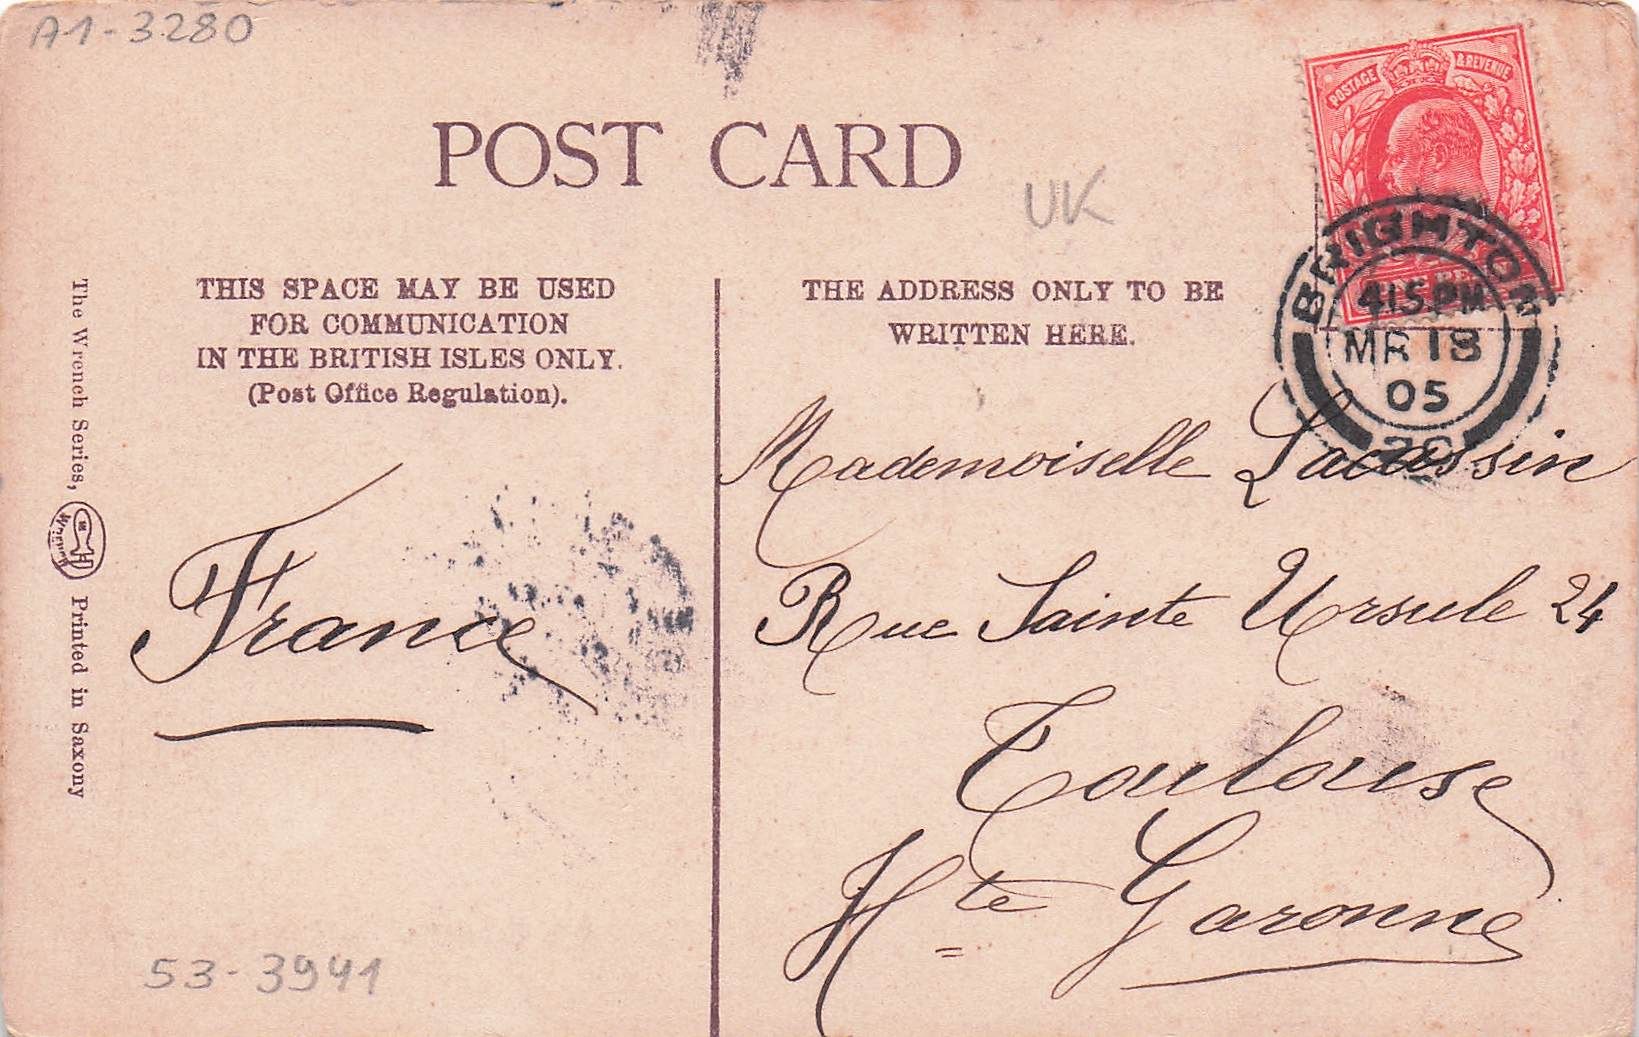 A1-3280
POST CARD
UK
POSTAGE & REVENUE
BRIGHTON
4 15 PM
MR 18
05
THIS SPACE MAY BE USED
FOR COMMUNICATION
IN THE BRITISH ISLES ONLY.
(Post Office Regulation).
THE ADDRESS ONLY TO BE
WRITTEN HERE.
The Wrench Series,
Wrench
Printed in Saxony
France
Mademoiselle Lacassin
Rue Sainte Ursule 24
Toulouse
Hte Garonne
53-3941